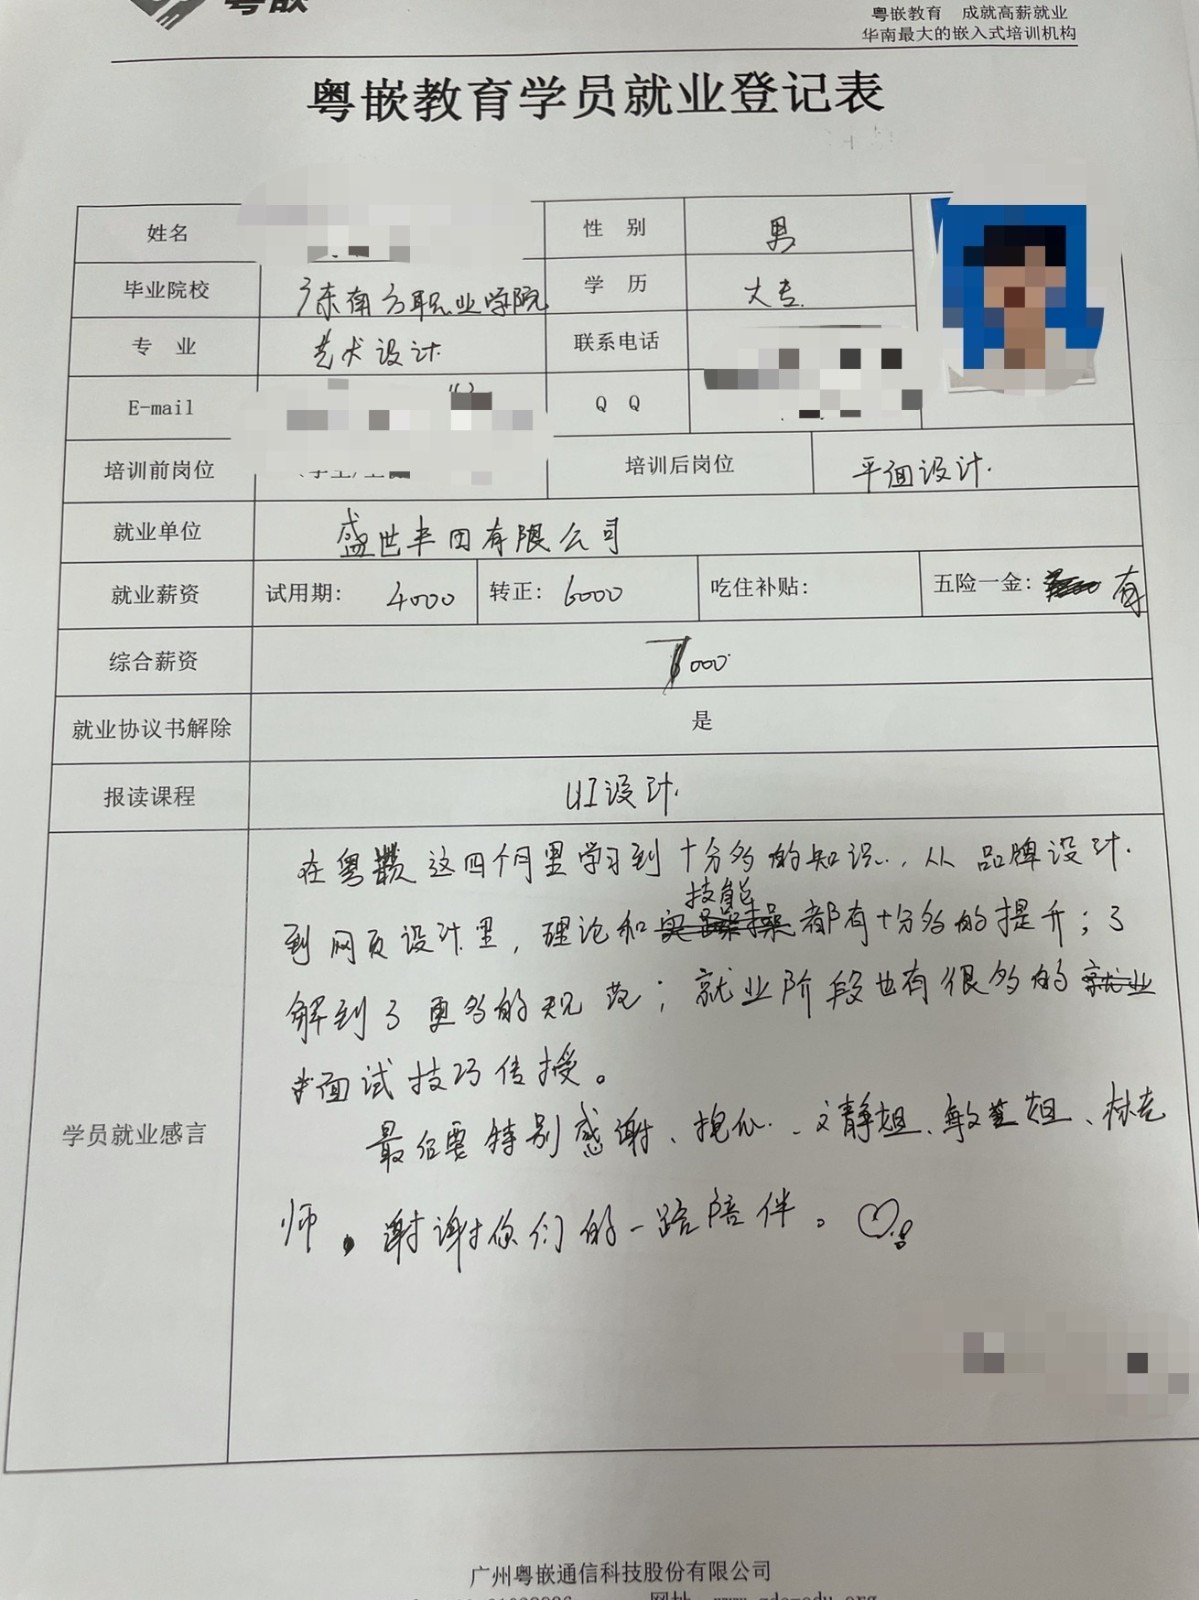 粤嵌
粤嵌教育 成就高薪就业
华南最大的嵌入式培训机构
粤嵌教育学员就业登记表
姓名 性 别 男
毕业院校 广东南方职业学院 学 历 大专
专 业 艺术设计 联系电话
E-mail Q Q
培训前岗位 培训后岗位 平面设计.
就业单位 盛世丰田有限公司
就业薪资 试用期: 4000 转正: 6000 吃住补贴: 五险一金: 有
综合薪资 7000
就业协议书解除 是
报读课程 UI设计.
学员就业感言
在粤嵌这四个月里学习到十分多的知识.,从品牌设计.
技能
到网页设计里,理论和实操都有十分多的提升;了
解到了更多的规范;就业阶段也有很多的就业
面试技巧传授。
最后要特别感谢、、文静姐、敏姐、林老
师。谢谢你们的一路陪伴。
广州粤嵌通信科技股份有限公司